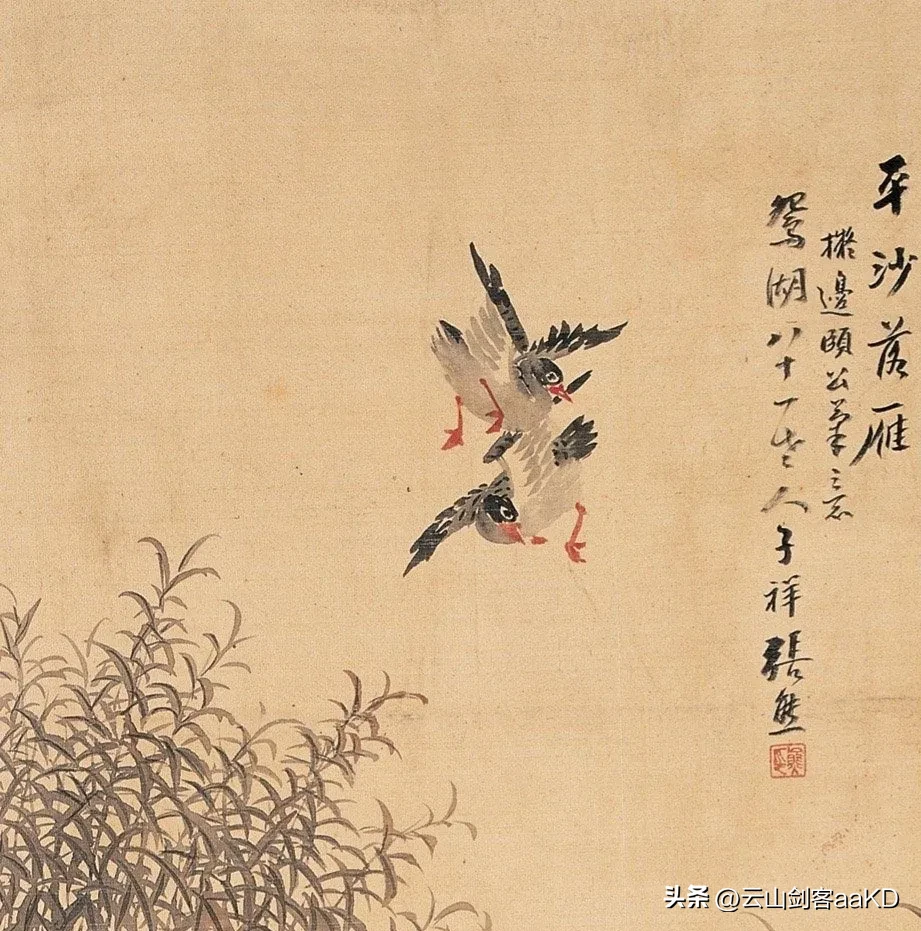 平沙落雁
擬邊頤公筆意
鴛湖八十一老人子祥張熊
头条 @云山剑客aaKD